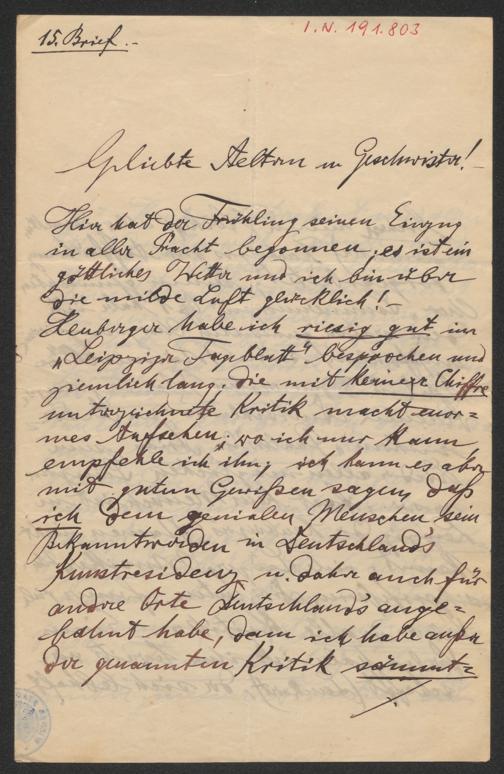 15. Brief.-
I.N. 191.803
Geliebte Aeltern u Geschwister!-
Hier hat der Frühling seinen Einzug
in aller Pracht begonnen; es ist ein
göttliches Wetter und ich bin über
die milde Luft glücklich!-
Heuberger habe ich riesig gut im
„Leipziger Tageblatt" besprochen und
ziemlich lang. Die mit keiner Chiffre
unterzeichnete Kritik macht enor=
mes Aufsehen; wo ich nur kann
empfehle ich ihn; ich kann es aber
mit gutem Gewißen sagen, daß
ich dem genialen Menschen sein
Bekanntwerden in Deutschland's
Kunstresidenz u. daher auch für
andere Orte Deutschland's ange=
bahnt habe, denn ich habe außer
der genannten Kritik sämmt=